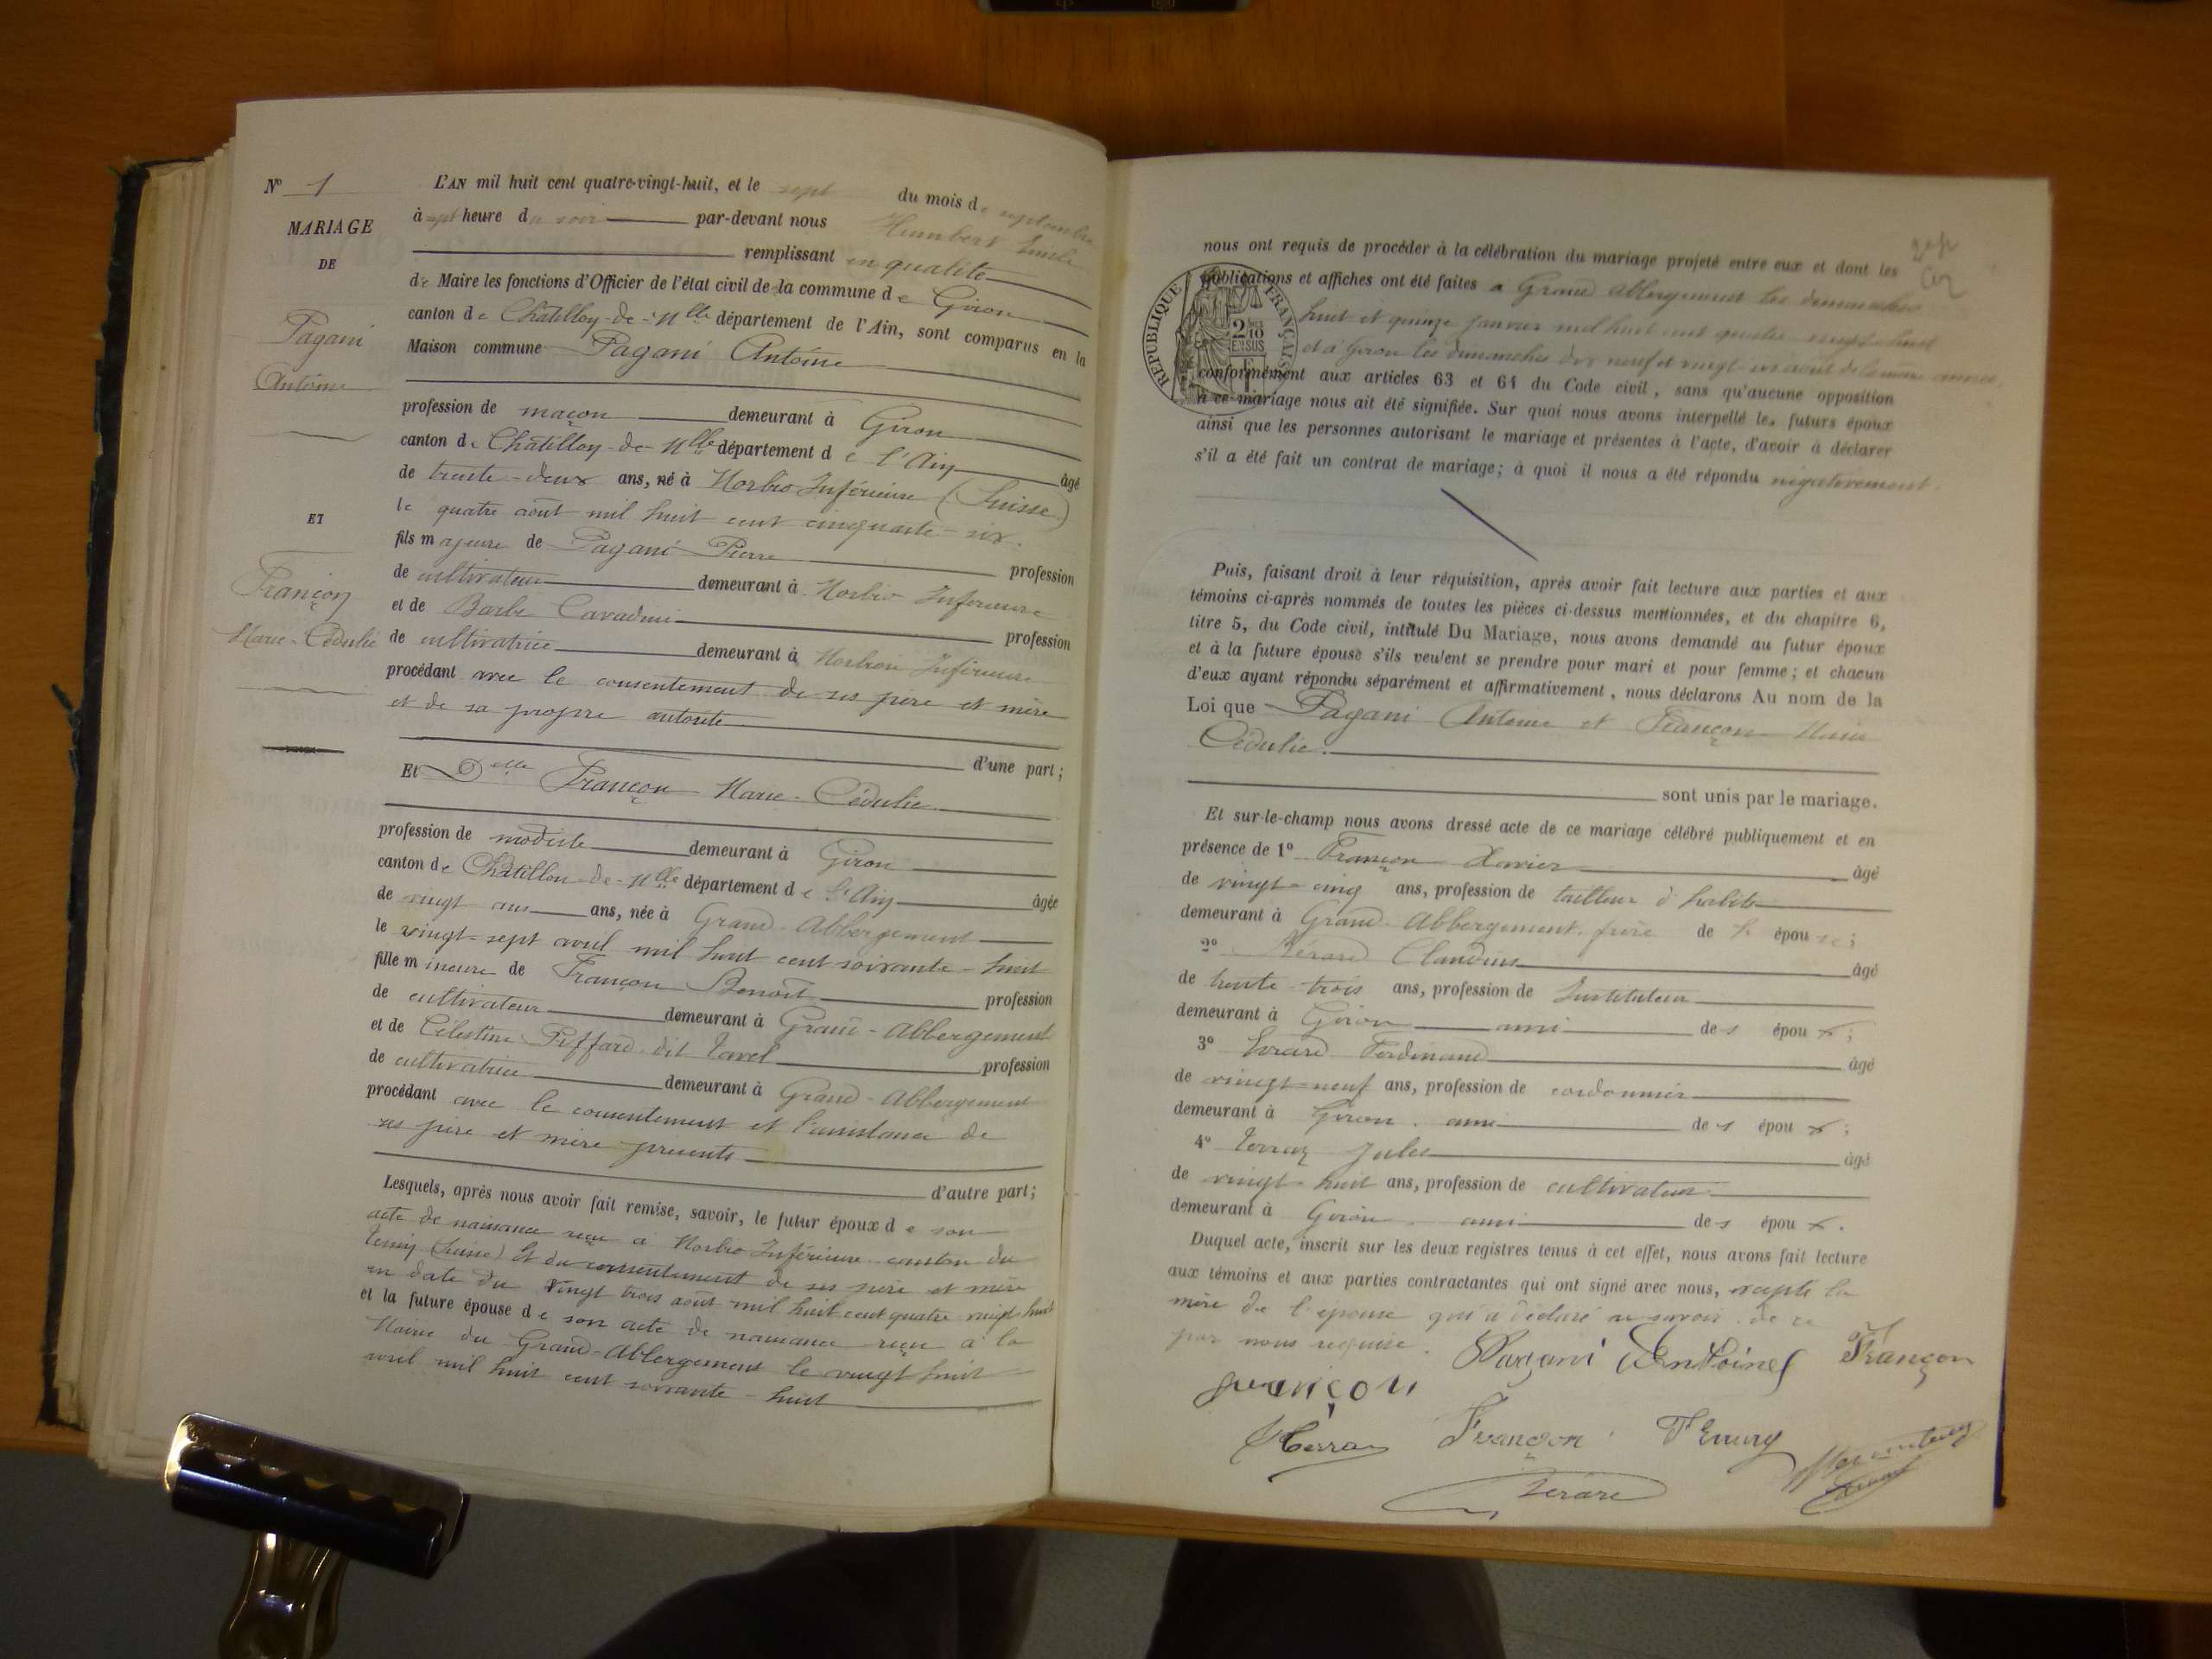 N° 1
MARIAGE
DE
Pagani
Antoine
ET
Françon
Marie-Cédulie
L'AN mil huit cent quatre-vingt-huit, et le sept du mois de septembre
à sept heure du soir par-devant nous Humbert Emile
remplissant en qualité
de Maire les fonctions d'Officier de l'état civil de la commune de Giron
canton de Châtilloy-de-Mlle département de l'Ain, sont comparus en la
Maison commune Pagani Antoine
profession de maçon demeurant à Giron
canton de Châtilloy-de-Mlle département de l'Ain âgé
de trente-deux ans, né à Morbio Inférieure (Suisse)
le quatre août mil huit cent cinquante-six.
fils majeure de Pagani Pierre profession
de cultivateur demeurant à Morbio Inférieure
et de Barbe Cavadini profession
de cultivatrice demeurant à Morbion Inférieure
procédant avec le consentement de ses père et mère
et de sa propre autorité
d'une part;
Et Delle Françon Marie-Cédulie
profession de modiste demeurant à Giron
canton de Châtillon-de-Mlle département de l'Ain âgée
de vingt ans ans, née à Grand-Abbergement
le vingt-sept avril mil huit cent soixante-huit
fille mineure de Françon Benoit profession
de cultivateur demeurant à Grand-Abbergement
et de Célestine Piffard dit Tavel profession
de cultivatrice demeurant à Grand-Abbergement
procédant avec le consentement et l'assistance de
ses père et mère présents
d'autre part;
Lesquels, après nous avoir fait remise, savoir, le futur époux de son
acte de naissance reçu à Morbio Inférieure canton du
Tessin (Suisse) Et du consentement de ses père et mère
en date du vingt trois août mil huit cent quatre vingt huit
et la future épouse de son acte de naissance reçu à la
Mairie du Grand-Abbergement le vingt huit
avril mil huit cent soixante-huit
nous ont requis de procéder à la célébration du mariage projeté entre eux et dont les
publications et affiches ont été faites à Grand Abbergement les dimanches
huit et quinze janvier mil huit cent quatre vingt huit
et à Giron les dimanches dix neuf et vingt-six août de la même année
RÉPUBLIQUE FRANÇAISE
2/10 EN SUS
conformément aux articles 63 et 64 du Code civil, sans qu'aucune opposition
à ce mariage nous ait été signifiée. Sur quoi nous avons interpellé les futurs époux
ainsi que les personnes autorisant le mariage et présentes à l'acte, d'avoir à déclarer
s'il a été fait un contrat de mariage; à quoi il nous a été répondu négativement.
Puis, faisant droit à leur réquisition, après avoir fait lecture aux parties et aux
témoins ci-après nommés de toutes les pièces ci-dessus mentionnées, et du chapitre 6,
titre 5, du Code civil, intitulé Du Mariage, nous avons demandé au futur époux
et à la future épouse s'ils veulent se prendre pour mari et pour femme; et chacun
d'eux ayant répondu séparément et affirmativement, nous déclarons Au nom de la
Loi que Pagani Antoine et Françon Marie
Cédulie.
sont unis par le mariage.
Et sur-le-champ nous avons dressé acte de ce mariage célébré publiquement et en
présence de 1° Françon Xavier âgé
de vingt-cinq ans, profession de tailleur d'habits
demeurant à Grand-Abbergement frère de l' épouse;
2° Bérard Claudius âgé
de trente-trois ans, profession de Instituteur
demeurant à Giron ami des époux;
3° Evrard Ferdinand âgé
de vingt-neuf ans, profession de cordonnier
demeurant à Giron. ami des époux;
4° Terraz Jules âgé
de vingt-huit ans, profession de cultivateur
demeurant à Giron. ami des époux.
Duquel acte, inscrit sur les deux registres tenus à cet effet, nous avons fait lecture
aux témoins et aux parties contractantes qui ont signé avec nous, excepté la
mère de l'épouse qui a déclaré ne savoir de ce
par nous requise.
Pagani Antoine Françon
françon
Françon
Bérard